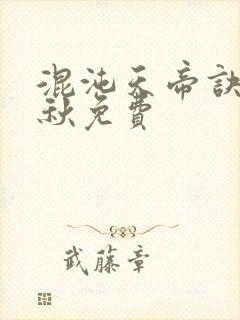 混沌天帝訣
秋免費
武藤章